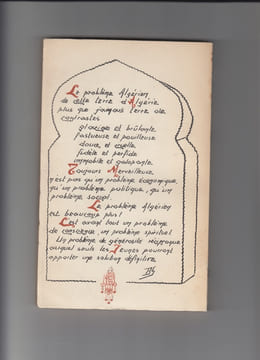 Le problème Algérien
de cette terre d'Algérie
plus que jamais terre de
contrastes
glaciale et brûlante
fastueuse et pouilleuse
douce et cruelle
fidèle et perfide
immobile et galopante
Toujours Merveilleuse,
n'est pas qu'un problème économique,
qu'un problème politique, qu'un
problème social.
Le problème Algérien
est beaucoup plus!
C'est avant tout un problème
de conscience, un problème spirituel
Un problème de générosité réciproque
auquel seuls les Jeunes pourront
apporter une solution définitive.